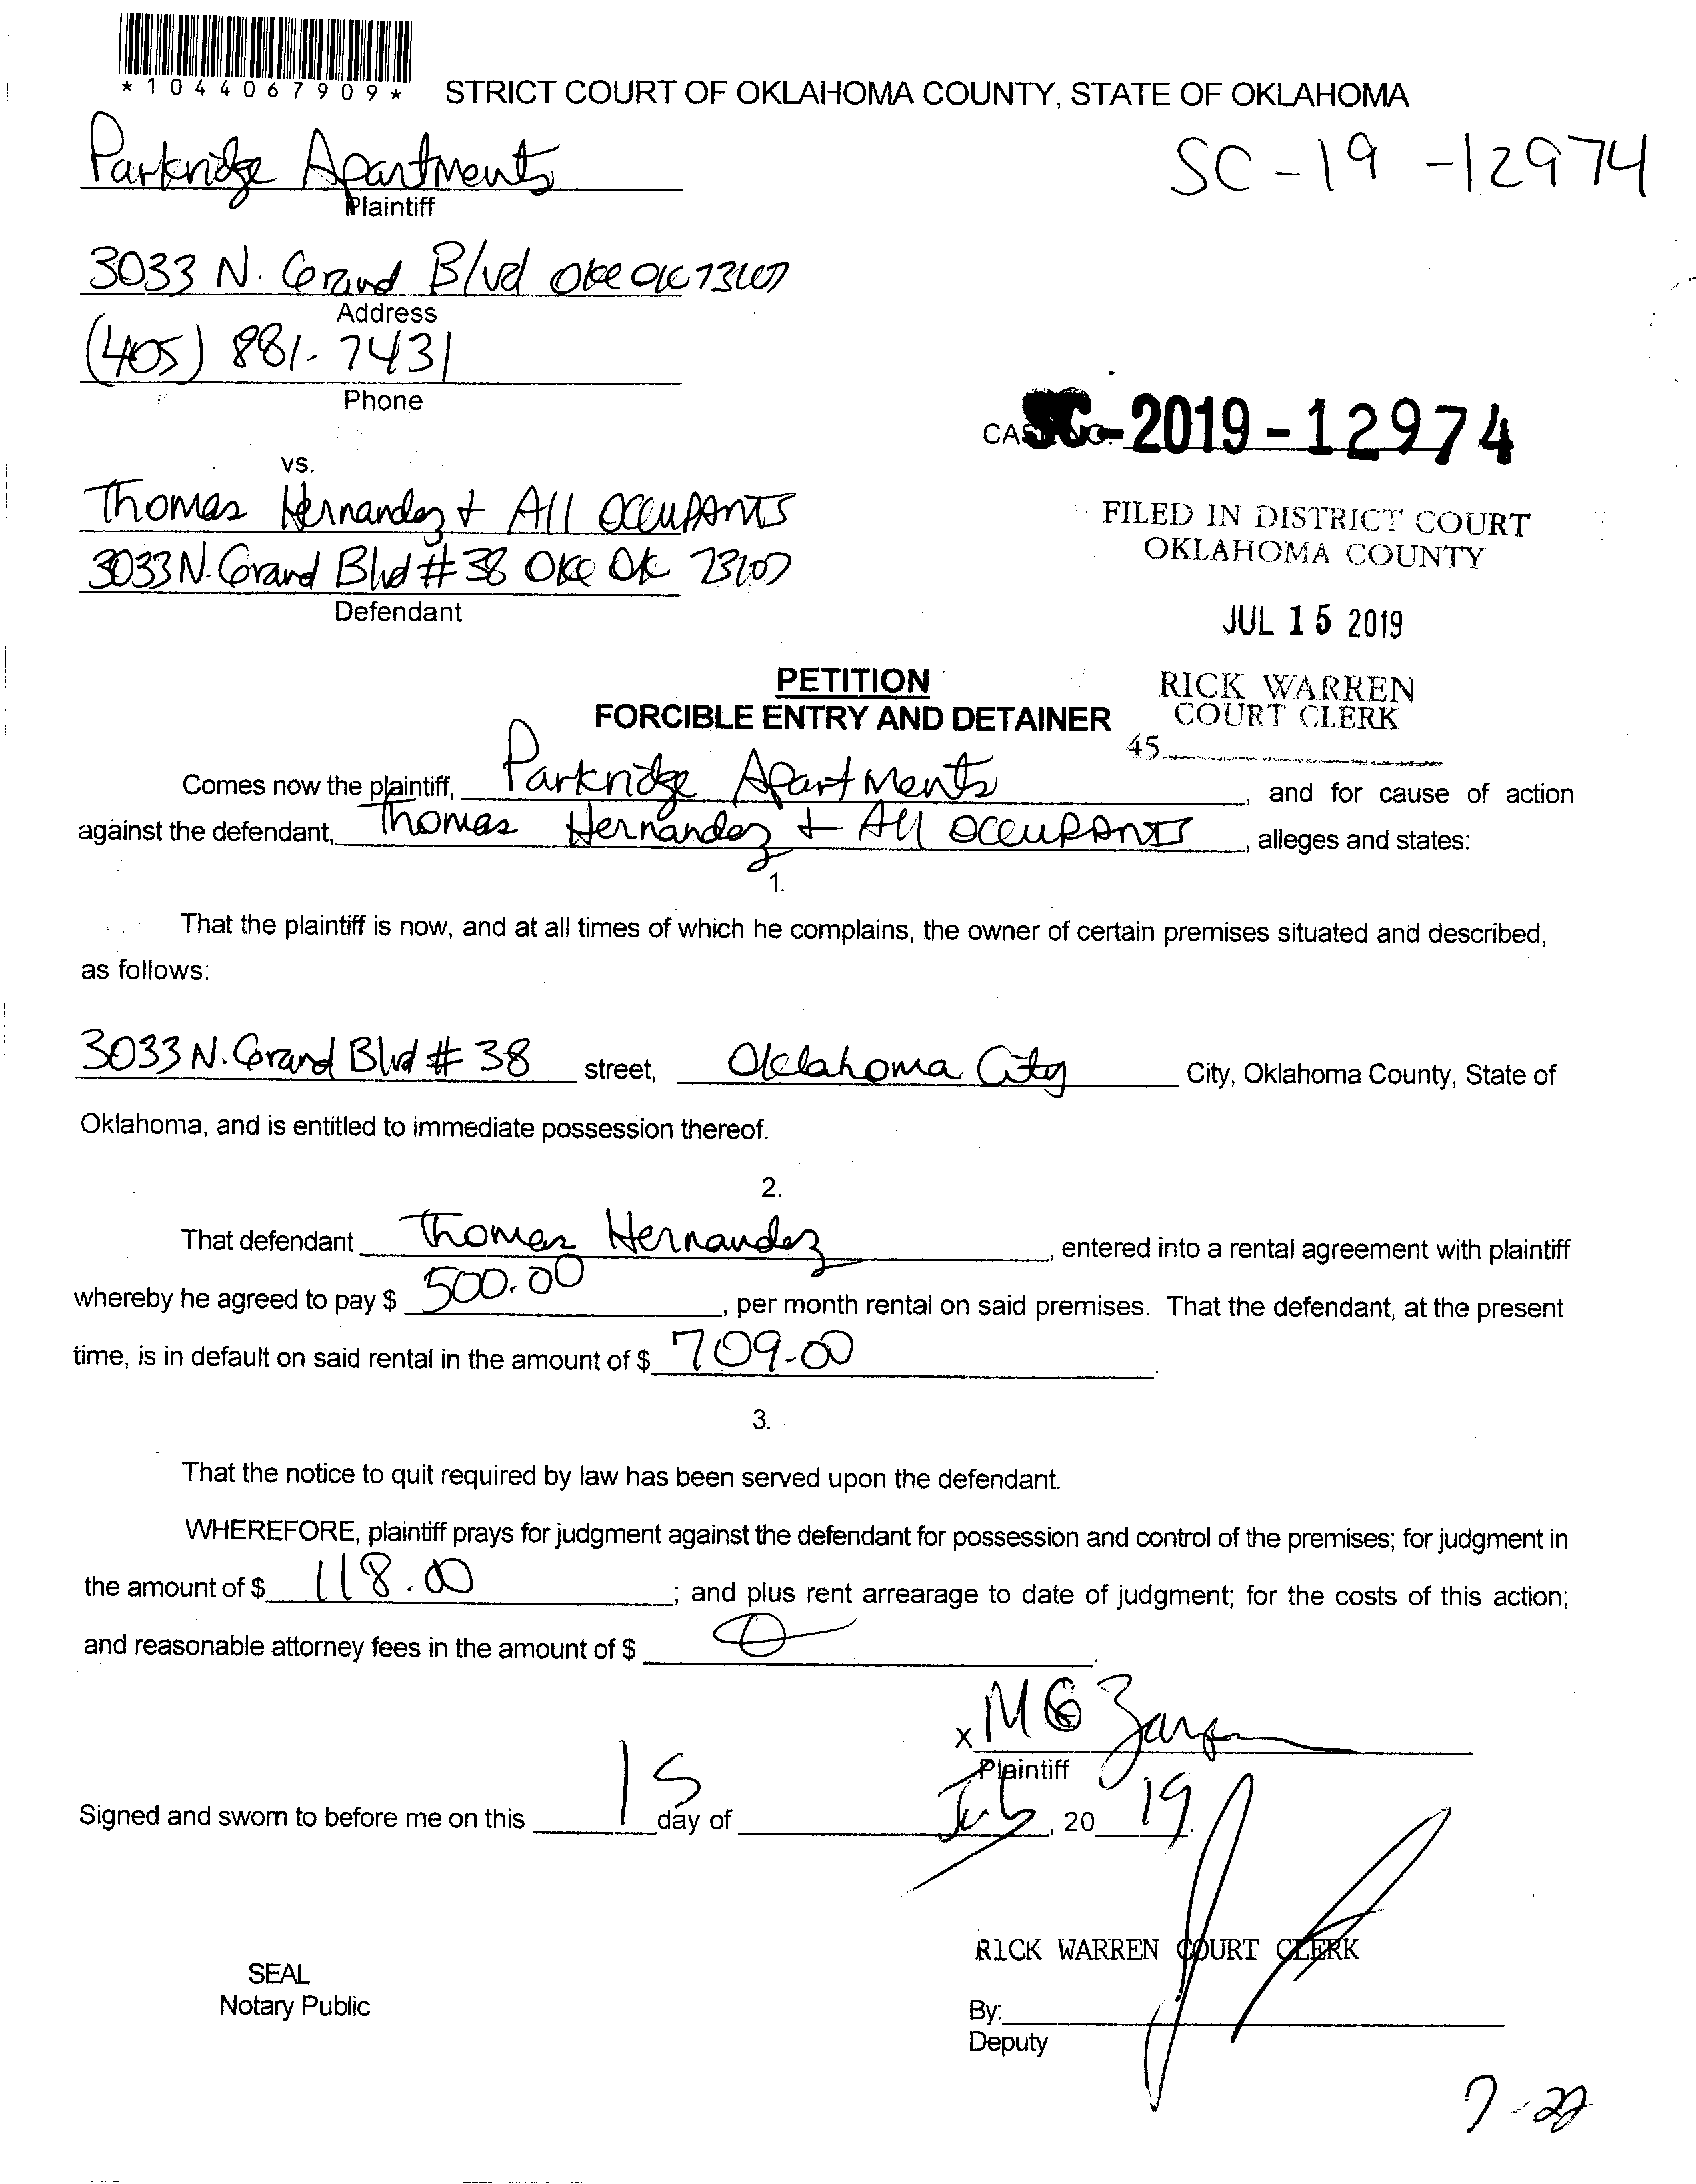 *1044067909*
STRICT COURT OF OKLAHOMA COUNTY, STATE OF OKLAHOMA
Parkridge Apartments
SC-19-12974
Plaintiff
3033 N. Grand Blvd OKC OK 73107
Address
(405) 881-7431
Phone
SC-2019-12974
vs.
Thomas Hernandez & All OCCUPANTS
3033 N. Grand Blvd # 38 OKC OK 73107
Defendant
FILED IN DISTRICT COURT
OKLAHOMA COUNTY
JUL 15 2019
RICK WARREN
COURT CLERK
45
PETITION
FORCIBLE ENTRY AND DETAINER
Comes now the plaintiff, Parkridge Apartments, and for cause of action
against the defendant, Thomas Hernandez & All OCCUPANTS, alleges and states:
1.
That the plaintiff is now, and at all times of which he complains, the owner of certain premises situated and described,
as follows:
3033 N. Grand Blvd # 38 street, Oklahoma City City, Oklahoma County, State of
Oklahoma, and is entitled to immediate possession thereof.
2.
That defendant Thomas Hernandez, entered into a rental agreement with plaintiff
whereby he agreed to pay $ 500.00, per month rental on said premises. That the defendant, at the present
time, is in default on said rental in the amount of $ 709.00.
3.
That the notice to quit required by law has been served upon the defendant.
WHEREFORE, plaintiff prays for judgment against the defendant for possession and control of the premises; for judgment in
the amount of $ 118.00; and plus rent arrearage to date of judgment; for the costs of this action;
and reasonable attorney fees in the amount of $ 0.
x
Plaintiff
Signed and sworn to before me on this 15 day of July, 2019.
RICK WARREN COURT CLERK
SEAL
Notary Public
By:
Deputy
7-22